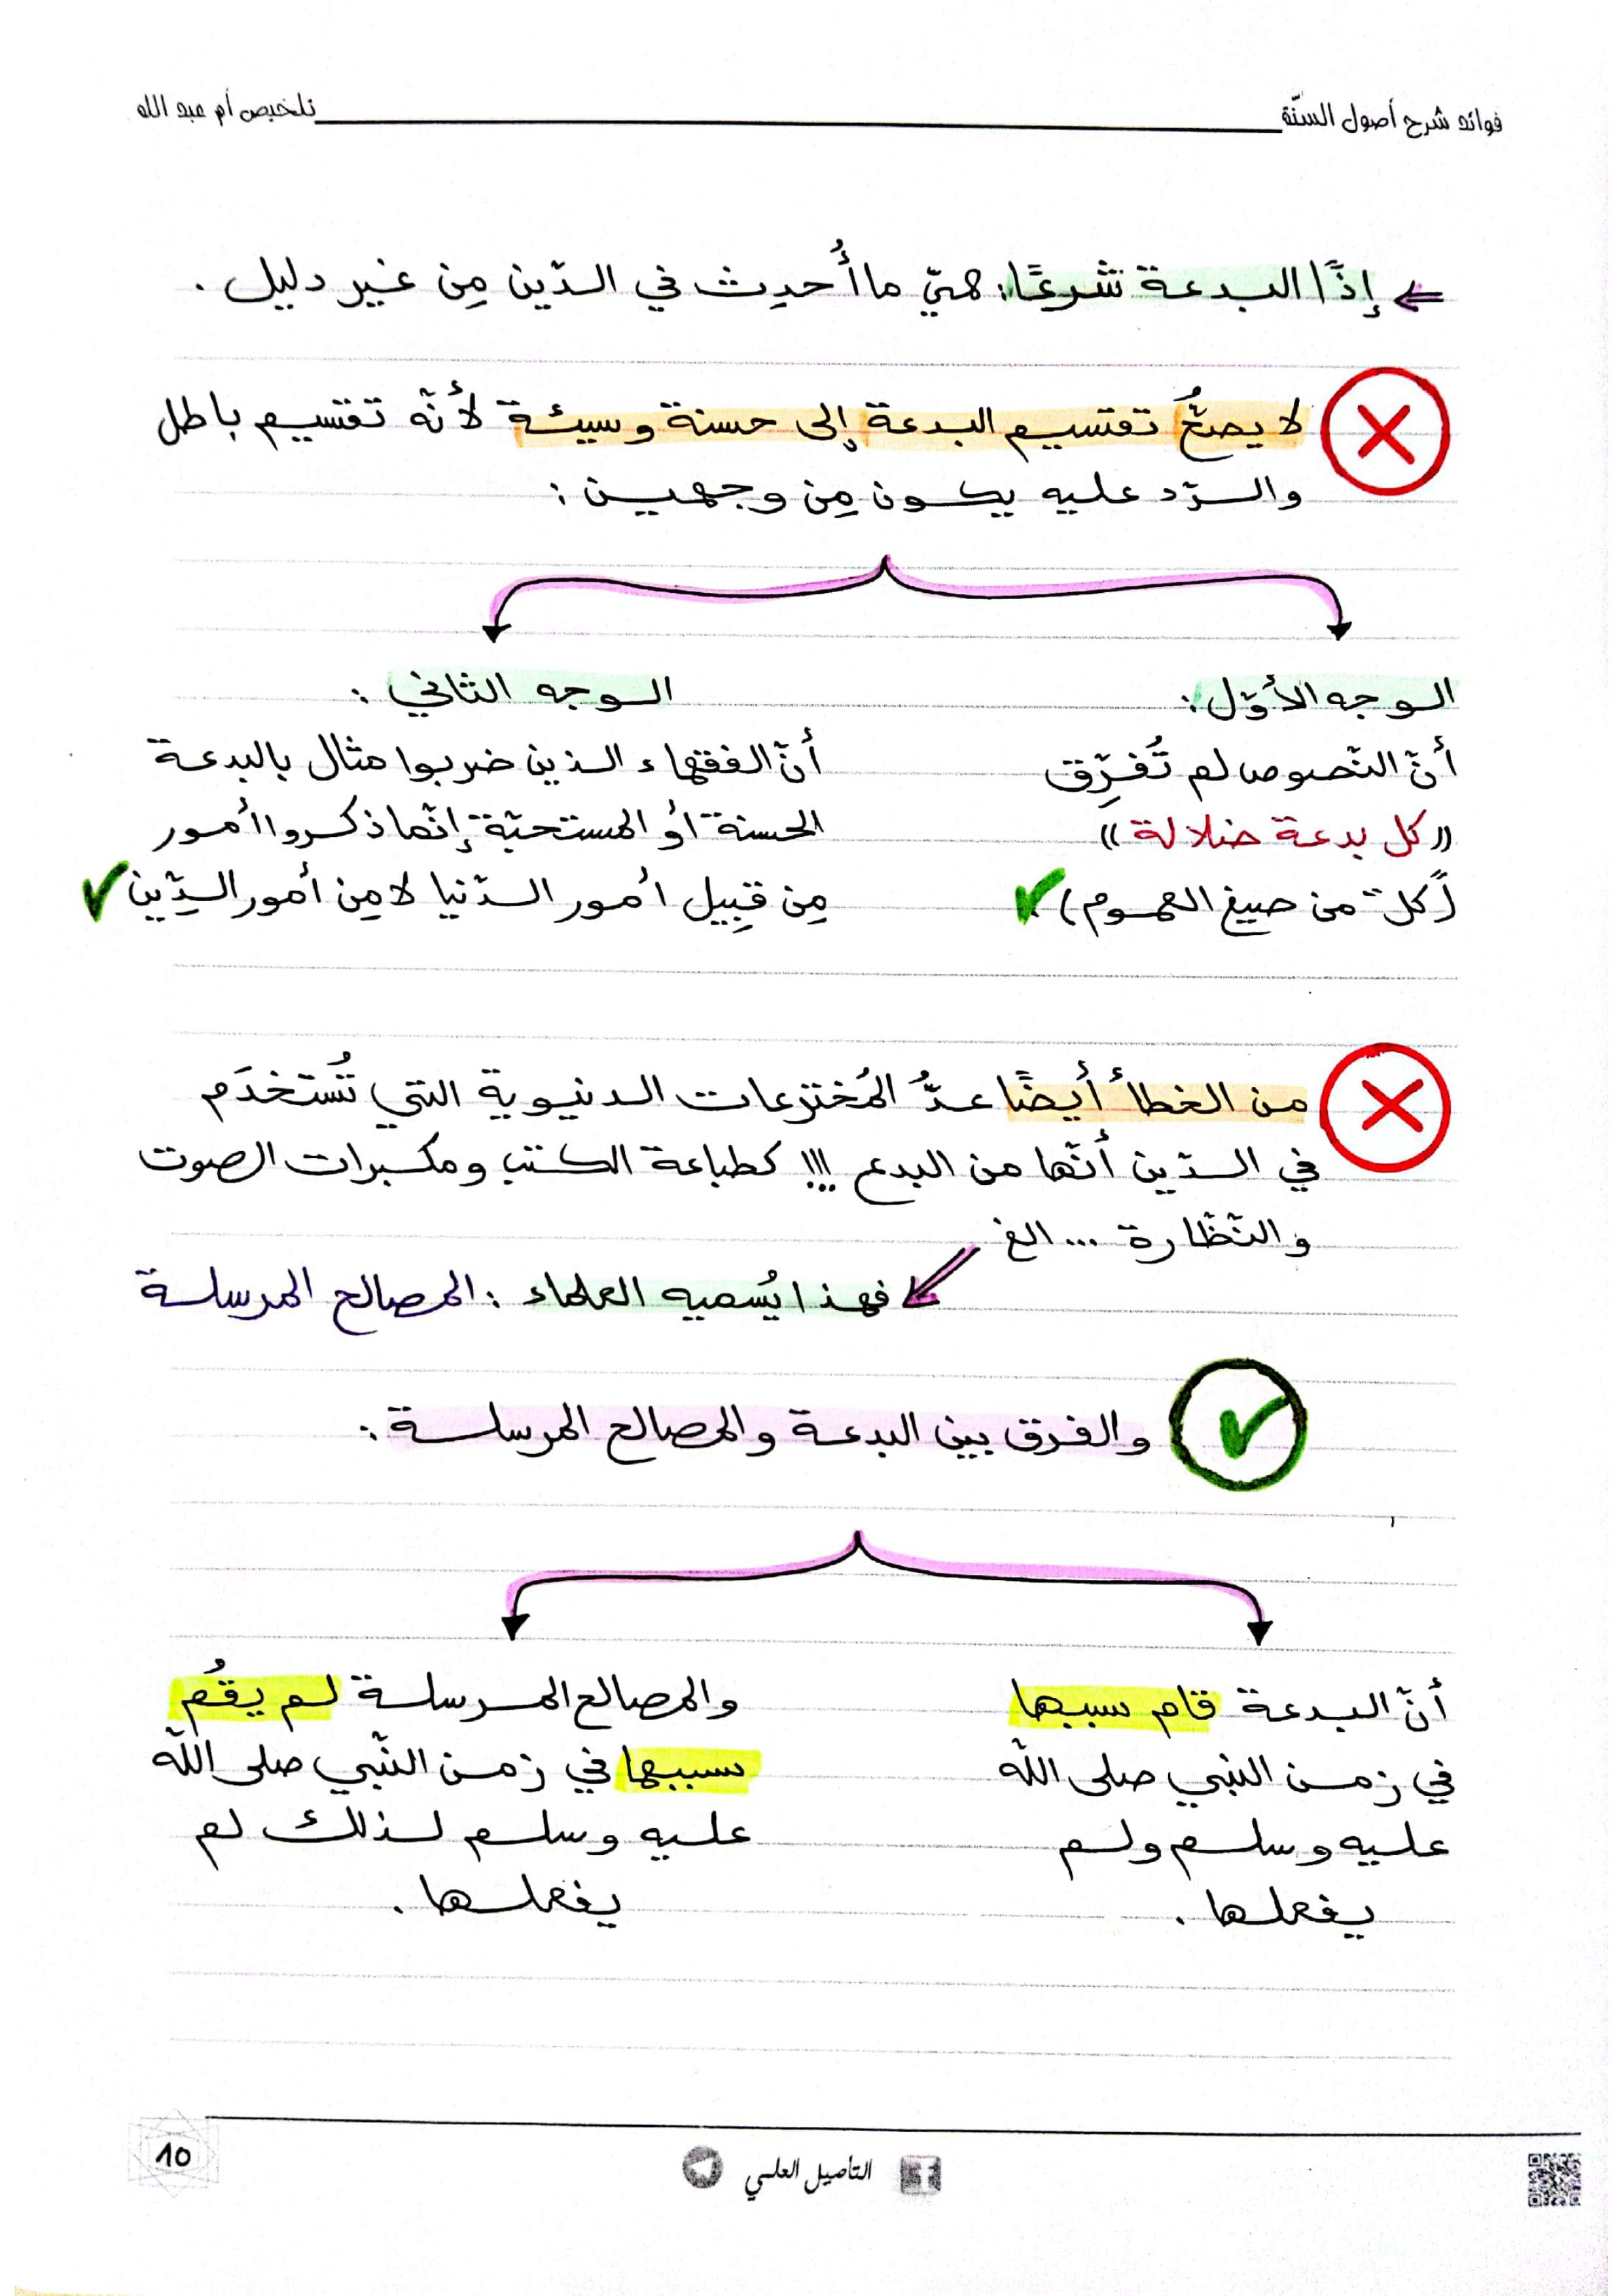 فوائد شرح أصول السنّة
تلخيص أم عبد الله
إذًا البدعة شرعًا: هي ما أُحدِث في الدّين مِن غير دليل.
لا يصحُّ تقسيم البدعة إلى حسنة وسيئة لأنّه تقسيم باطل
والرّد عليه يكون مِن وجهين:
الوجه الأوّل:
أنّ النّصوص لم تُفرِّق
((كل بدعة ضلالة))
("كل" من صيغ العموم).
الوجه الثاني:
أنّ الفقهاء الذين ضربوا مثال بالبدعة
الحسنة أو المستحبّة إنّما ذكروا أمور
مِن قبِيل أمور الدّنيا لا مِن أمور الدِّين
من الخطأ أيضًا عدُّ المُخترعات الدنيوية التي تُستخدَم
في الدّين أنّها من البدع !!! كطباعة الكتب ومكبرات الصوت
والنّظّارة ... الخ
فهذا يُسميه العلماء: المصالح المرسلة
والفرق بين البدعة والمصالح المرسلة:
أنّ البدعة قام سببها
في زمن النبي صلى الله
عليه وسلم ولم
يفعلها.
والمصالح المرسلة لم يقُم
سببها في زمن النّبي صلى الله
عليه وسلم لذلك لم
يفعلها.
التأصيل العلمي
10